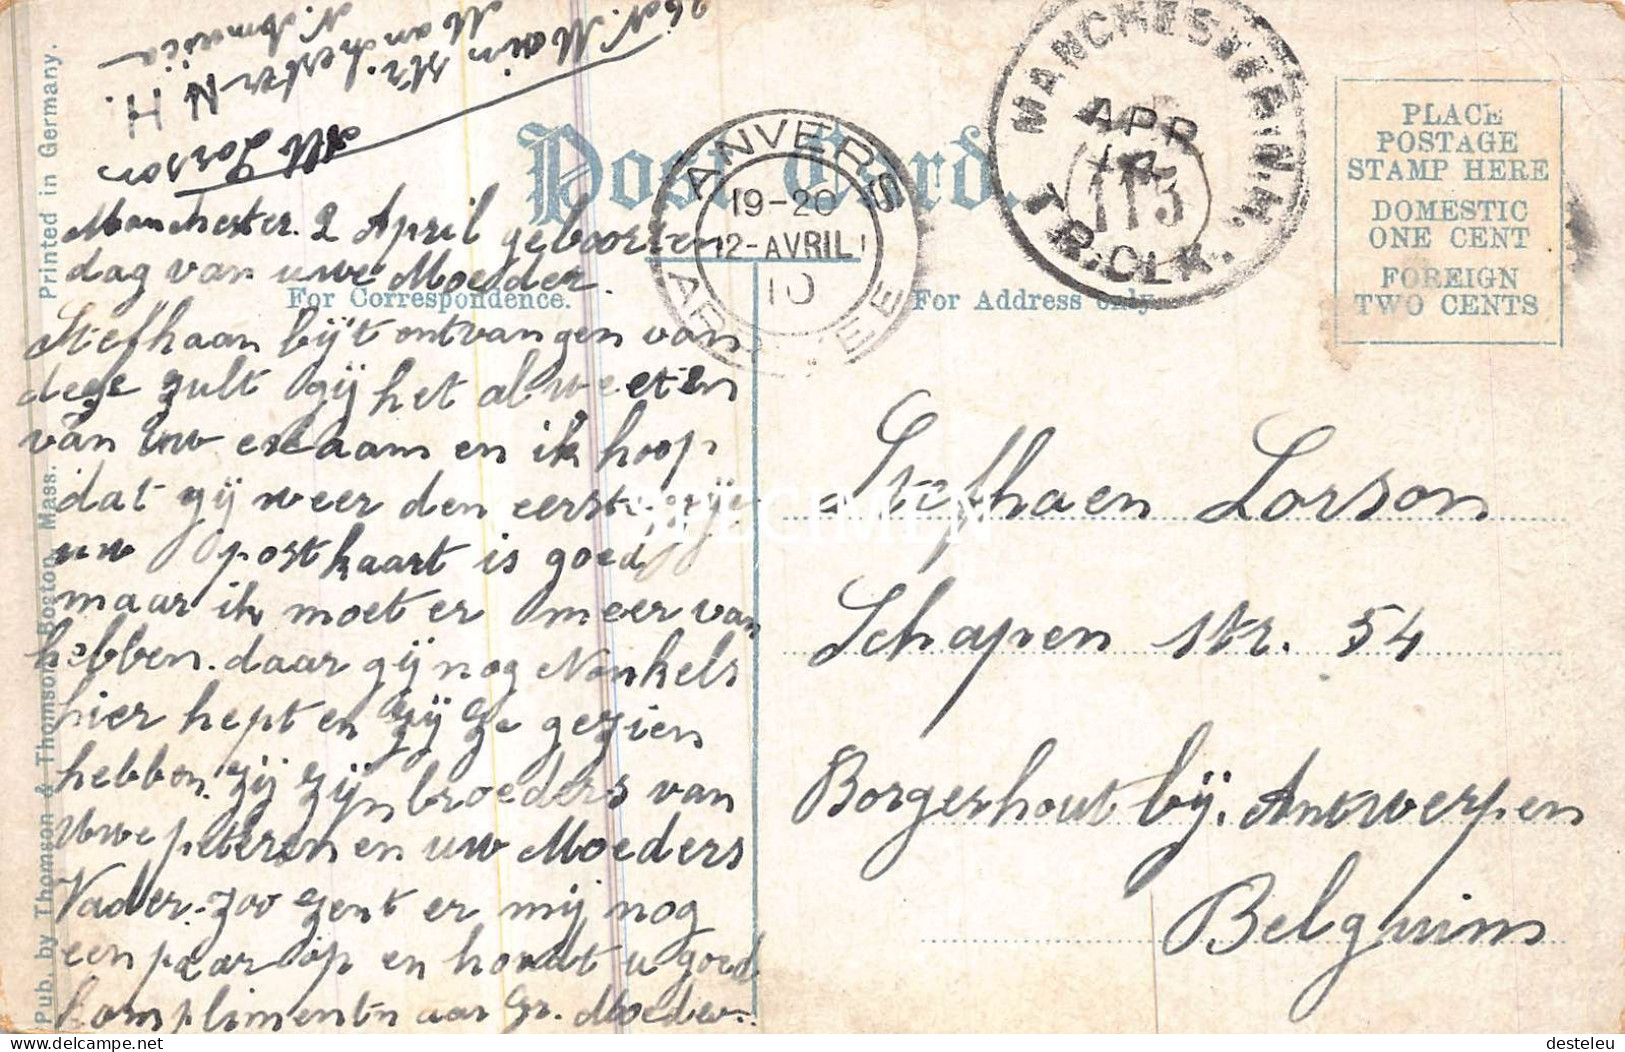 26 N. Main Str.
Manchester N H.
N. America
Alf Lorson
Manchester. 2 April geboorten
dag van uwe Moeder.
Stefhaan bij't ontvangen van
deze zult gij het al weeten
van uw en ik hoop
dat gij weer den eerste zijt
uw postkaart is goed
maar ik moet er meer van
hebben. daar gij nog Nonkels
hier hept en gij ze gezien
hebben. zij zijn broeders van
uwe peteren en uw Moeders
Vader. zoo zent er mij nog
een paar op en houdt u goed
komplimentn aar Gr. Moeder.
Post Card.
For Correspondence.
For Address only.
ANVERS
19-20
12-AVRIL
10
MANCHESTER N.H.
APR
113
TR.CLK.
PLACE
POSTAGE
STAMP HERE
DOMESTIC
ONE CENT
FOREIGN
TWO CENTS
Stefhaen Lorson
Schapen str. 54
Borgerhout bij. Antwerpen
Belguim
Pub. by Thomson & Thomson, Boston, Mass. Printed in Germany.
SPECIMEN
desteleu
delcampe.net